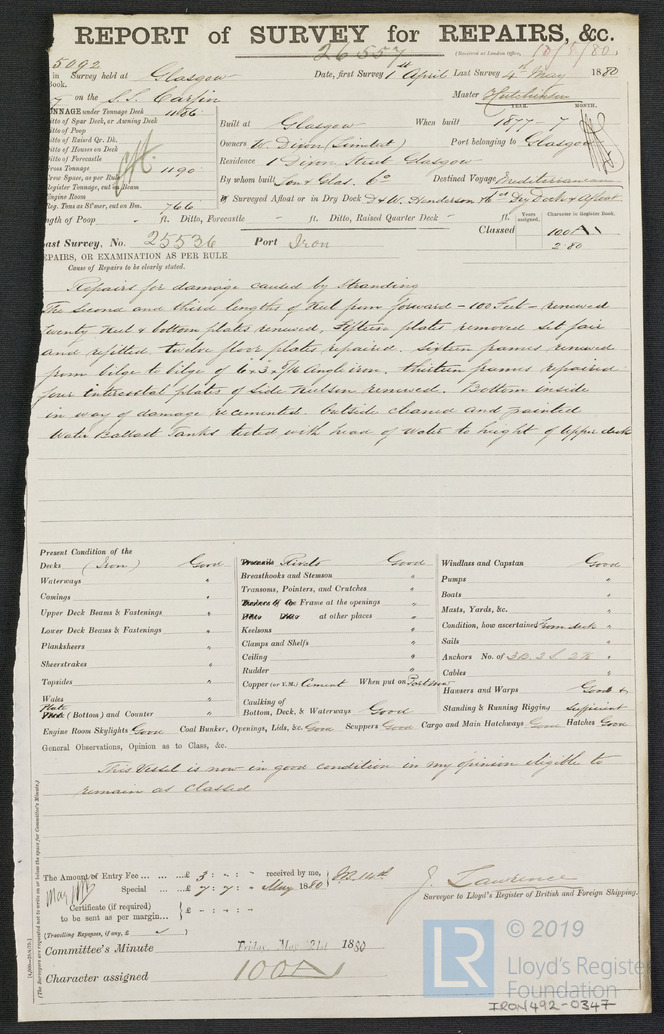 REPORT of SURVEY for REPAIRS, &c.
26557 (Received at London Office, 18/5/80.
5092
in Survey held at Glasgow Date, first Survey 1st April Last Survey 4th May 1880
Book.
on the S.S. Carfin Master Hutchinson
TONNAGE under Tonnage Deck 1186
YEAR. MONTH.
Ditto of Spar Deck, or Awning Deck
Built at Glasgow When built 1877-7
Ditto of Poop
Ditto of Raised Qr. Dk.
Ditto of Houses on Deck
Owners W. Dixon (Limited) Port belonging to Glasgow
Ditto of Forecastle
Gross Tonnage 1190
Residence 1 Dixon Street Glasgow
Crew Space, as per Rule
Register Tonnage, cut on Beam
By whom built Lon & Glas. Co Destined Voyage Mediterranean
Engine Room
Reg. Tons as St'mer, cut on Bm. 766
Surveyed Afloat or in Dry Dock D & W. Henderson & Co Dry Dock & Afloat
Length of Poop ft. Ditto, Forecastle - ft. Ditto, Raised Quarter Deck - ft.
Years assigned. Character in Register Book.
Classed 100A1
2.80
Last Survey, No. 25536 Port Iron
REPAIRS, OR EXAMINATION AS PER RULE
Cause of Repairs to be clearly stated.
Repairs for damage caused by stranding
The second and third lengths of keel from forward - 100 Feet - renewed
Twenty keel & bottom plates renewed, Fifteen plates removed set fair
and refitted, twelve floor plates repaired. Sixteen frames renewed
from bilge to bilge of 6 x 3 x 7/16 Angle iron. thirteen frames repaired
four intercostal plates of side keelson renewed. Bottom inside
in way of damage recemented. Outside cleaned and painted
Water Ballast Tanks tested with head of water to height of Upper deck
Present Condition of the
Decks (Iron) Good
Waterways "
Comings "
Upper Deck Beams & Fastenings "
Lower Deck Beams & Fastenings "
Planksheers "
Sheerstrakes "
Topsides "
Wales "
Plate (Bottom) and Counter "
Rivets Good
Breasthooks and Stemson "
Transoms, Pointers, and Crutches "
Frame at the openings "
at other places "
Keelsons "
Clamps and Shelfs "
Ceiling "
Rudder "
Copper (or Y.M.) Cement When put on Part New
Caulking of
Bottom, Deck, & Waterways Good
Windlass and Capstan Good
Pumps "
Boats "
Masts, Yards, &c. "
Condition, how ascertained From deck "
Sails "
Anchors No. of 3B. 3S. "
Cables "
Hawsers and Warps Good &
Standing & Running Rigging Sufficient
Engine Room Skylights Good Coal Bunker, Openings, Lids, &c. Good Scuppers Good Cargo and Main Hatchways Good Hatches Good
General Observations, Opinion as to Class, &c.
This Vessel is now in good condition in my opinion eligible to
remain as Classed
The Amount of Entry Fee ... ... ...£ 3 : - : - received by me,
Special ... ...£ 7 : 7 : - May 1880
Certificate (if required)
to be sent as per margin... £ - : - : -
(Travelling Expenses, if any, £ )
J. Lawrence
Surveyor to Lloyd's Register of British and Foreign Shipping.
Committee's Minute Friday May 21st 1880
Character assigned 100A1
(The Surveyors are requested not to write on or below the space for Committee's Minute.)
LR
© 2019
Lloyd's Register
Foundation
IRON492-0347